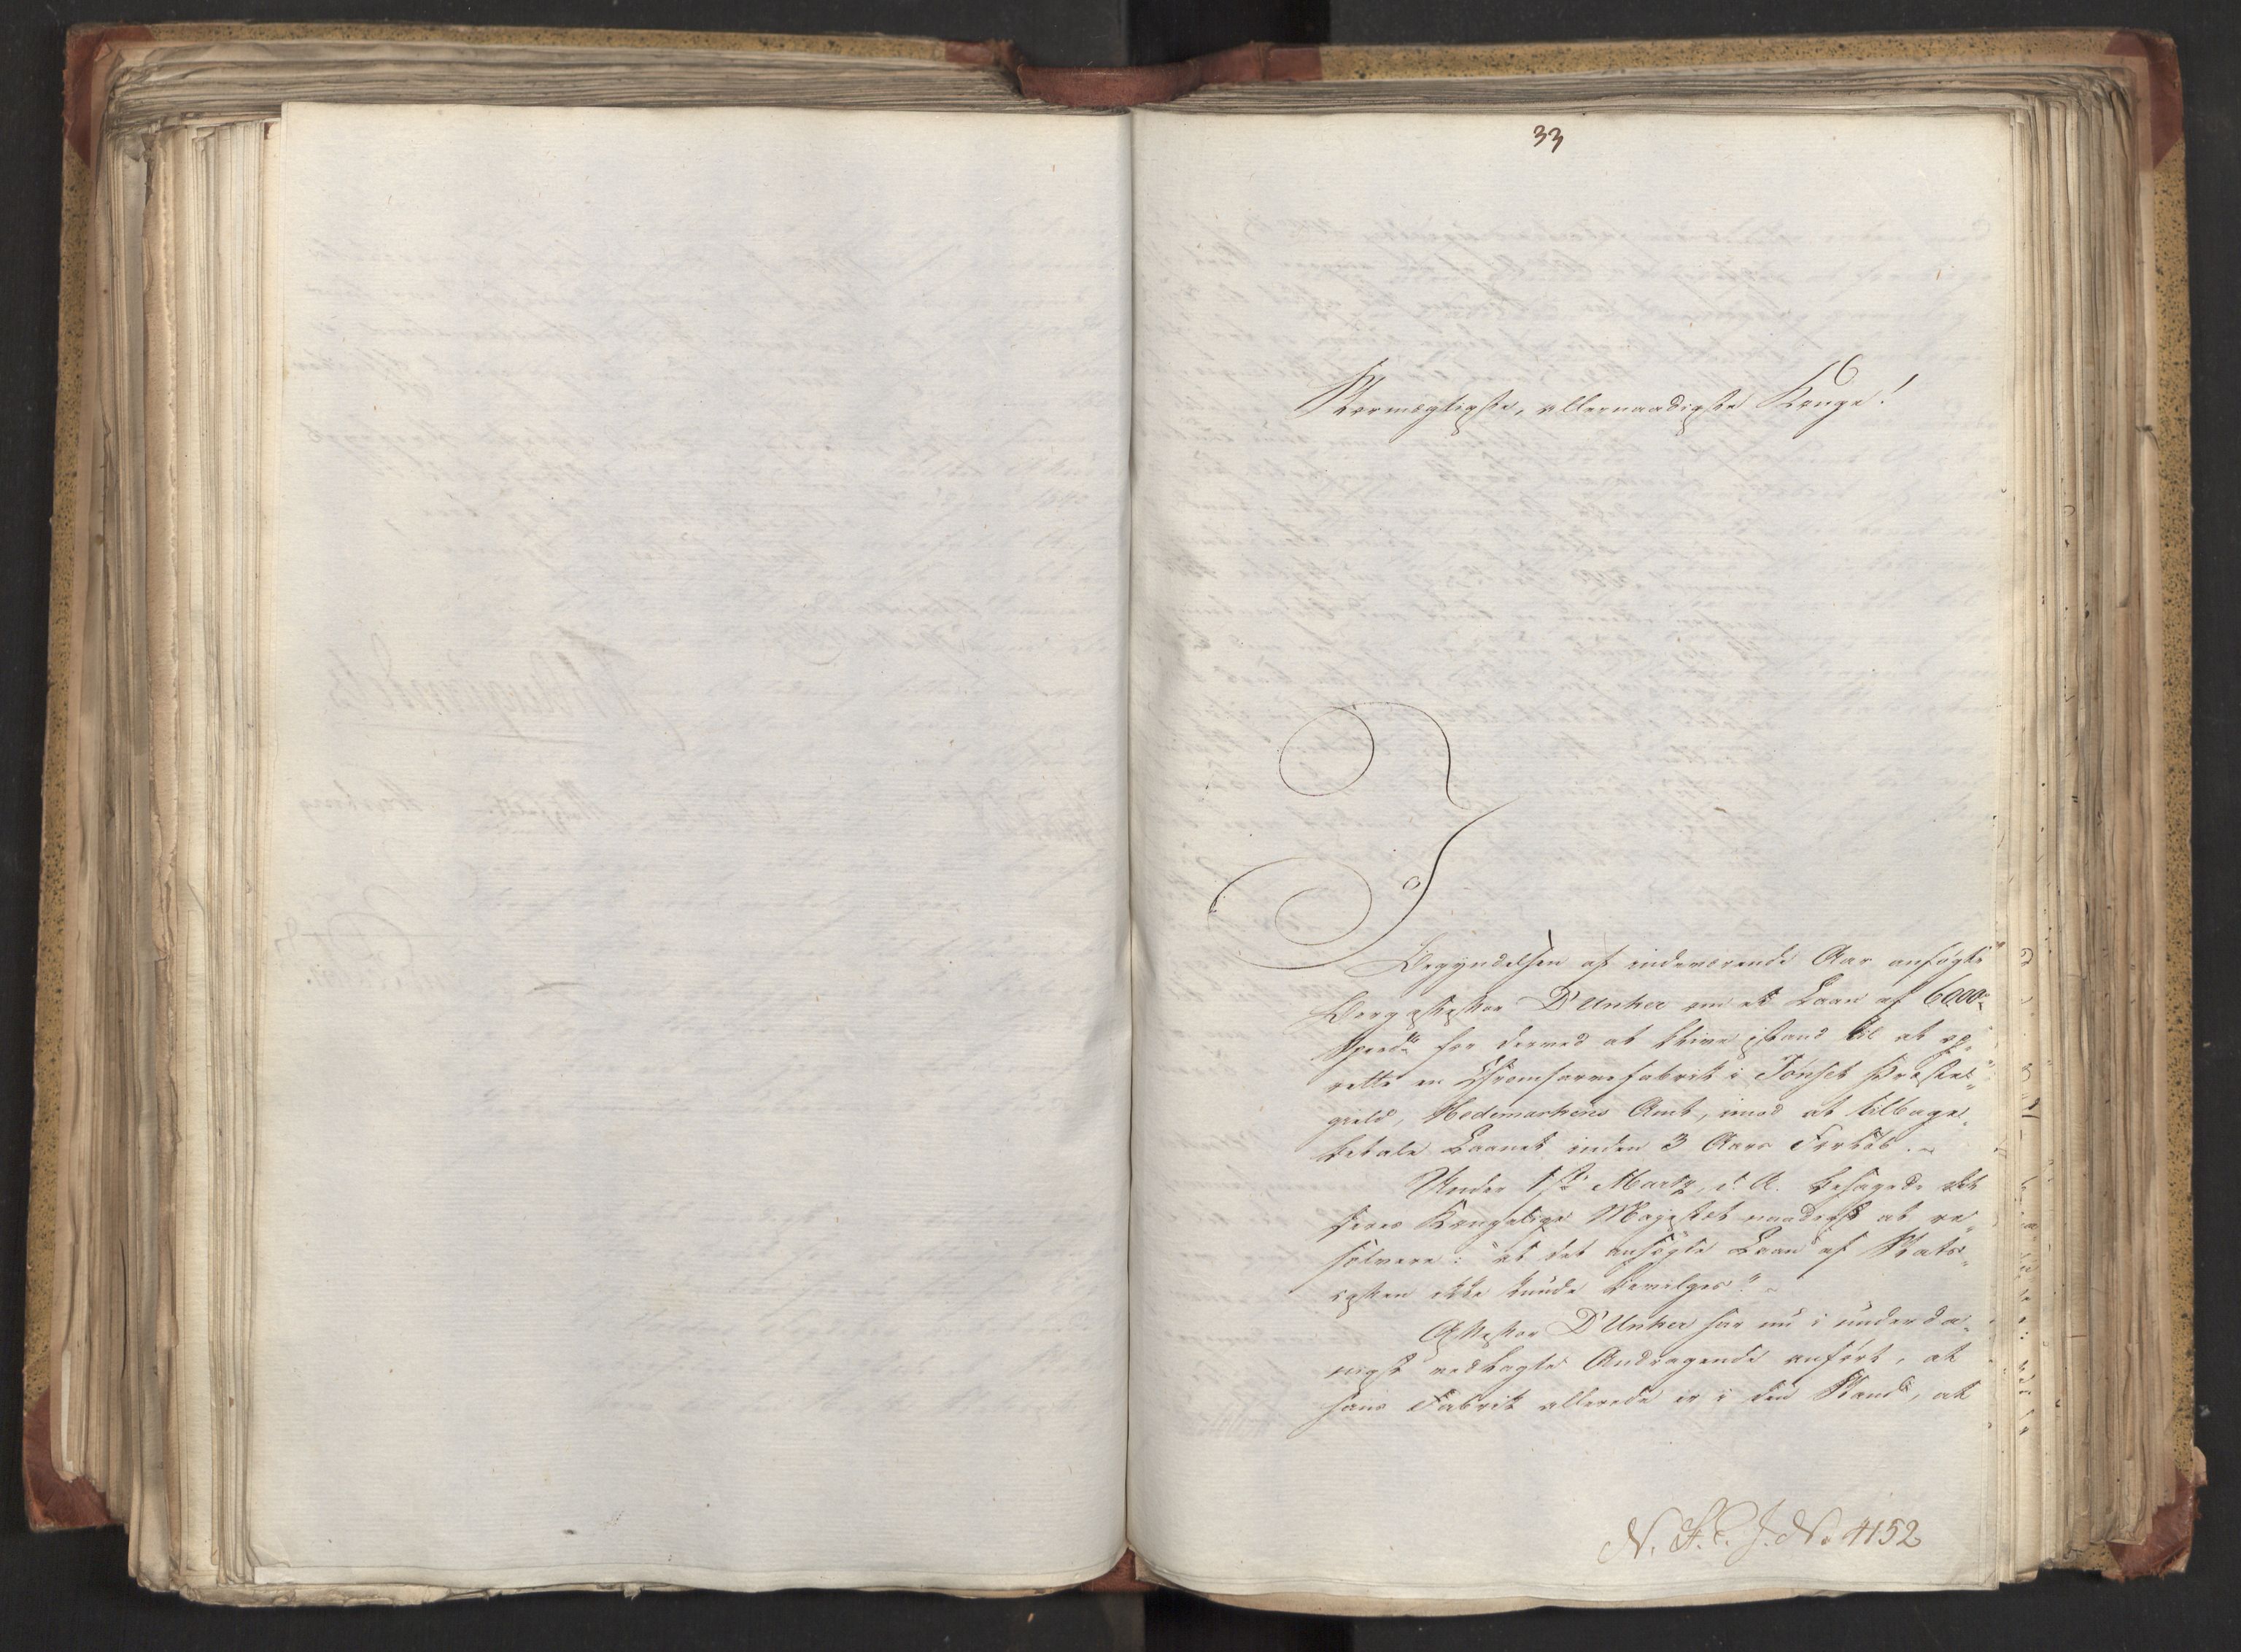 33
Stormægtigste, allernaadigste Konge!
I
Begyndelsen af indeværende Aar ansøgte
Bergassessor D'Unker om et Laan af 6000
Specd. for derved at blive istand til at op-
rette en Chromfarvefabrik i Tönset Præste-
gield, Hedemarkens Amt, imod at tilbage-
betale Laanet inden 3 Aars Forløb.
Under 1ste Marts d. A. behagede det
Deres Kongelige Majestæt naadigst at re-
solvere: "at det ansøgte Laan af Stats-
casten ikke kunde bevilges".
Assessor D'Unker har nu i underda-
nigst vedlagte Andragende anført, at
hans Fabrik allerede er i den Stand, at
N. F. E. J. No 4152